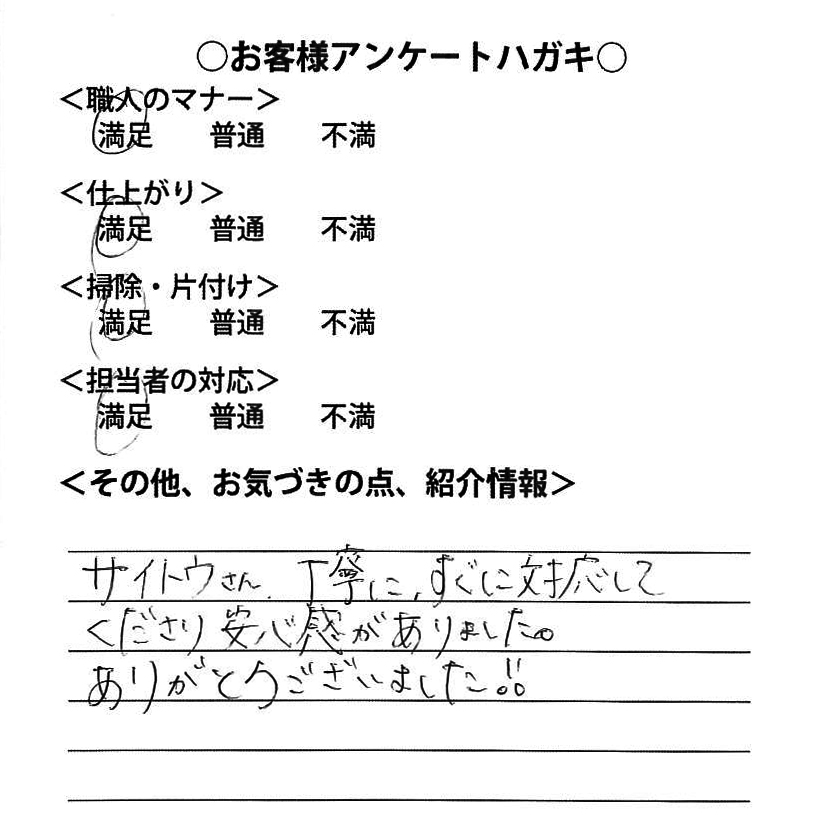 ○お客様アンケートハガキ○
＜職人のマナー＞
満足　普通　不満
＜仕上がり＞
満足　普通　不満
＜掃除・片付け＞
満足　普通　不満
＜担当者の対応＞
満足　普通　不満
＜その他、お気づきの点、紹介情報＞
サイトウさん、丁寧に、すぐに対応して
くださり安心感がありました。
ありがとうございました!!